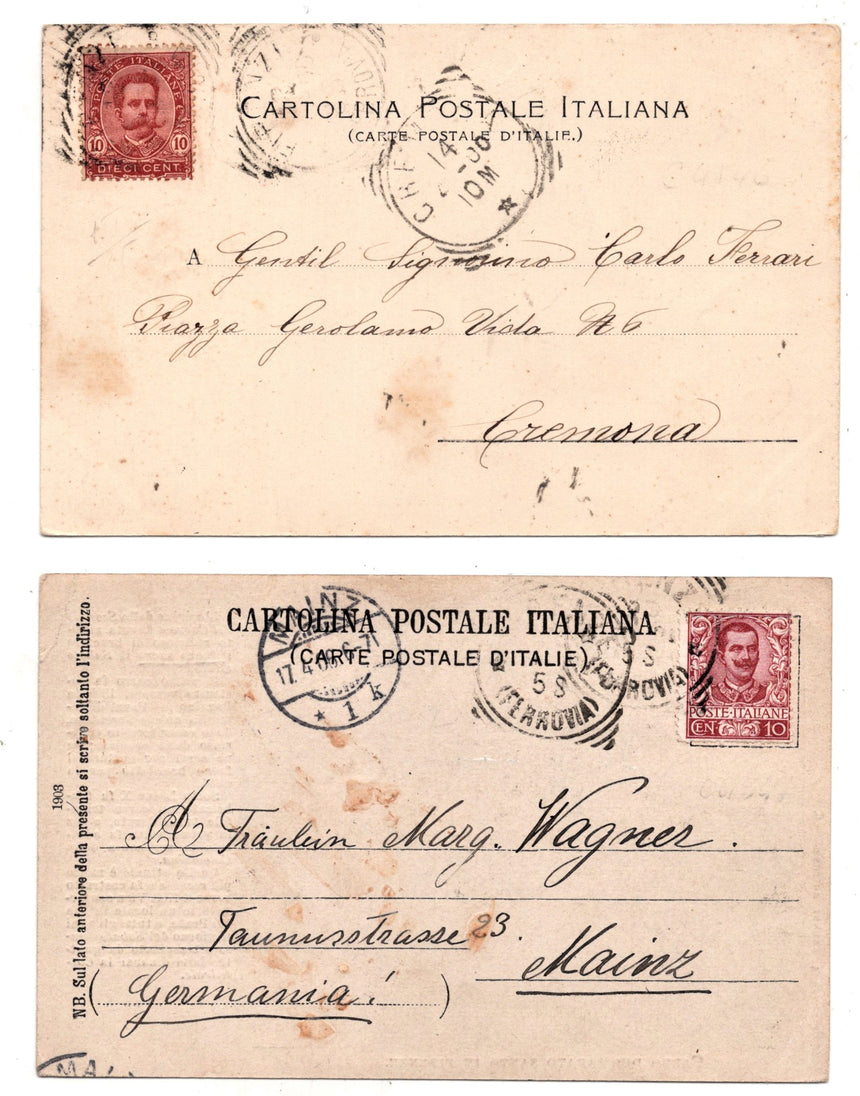 POSTE ITALIANE
10 10
DIECI CENT.
CARTOLINA POSTALE ITALIANA
(CARTE POSTALE D'ITALIE.)
14
10M
A Gentil Signorino Carlo Ferrari
Piazza Gerolamo Vida N 6
Cremona
CARTOLINA POSTALE ITALIANA
(CARTE POSTALE D'ITALIE)
MAINZ
17.4.
* 1 k
5 S
(FERROVIA)
5 S
POSTE·ITALIANE
CEN. 10
1903
NB. Sul lato anteriore della presente si scrive soltanto l'indirizzo.
A Fräulein Marg. Wagner.
Taunusstrasse 23.
Mainz
(Germania!)